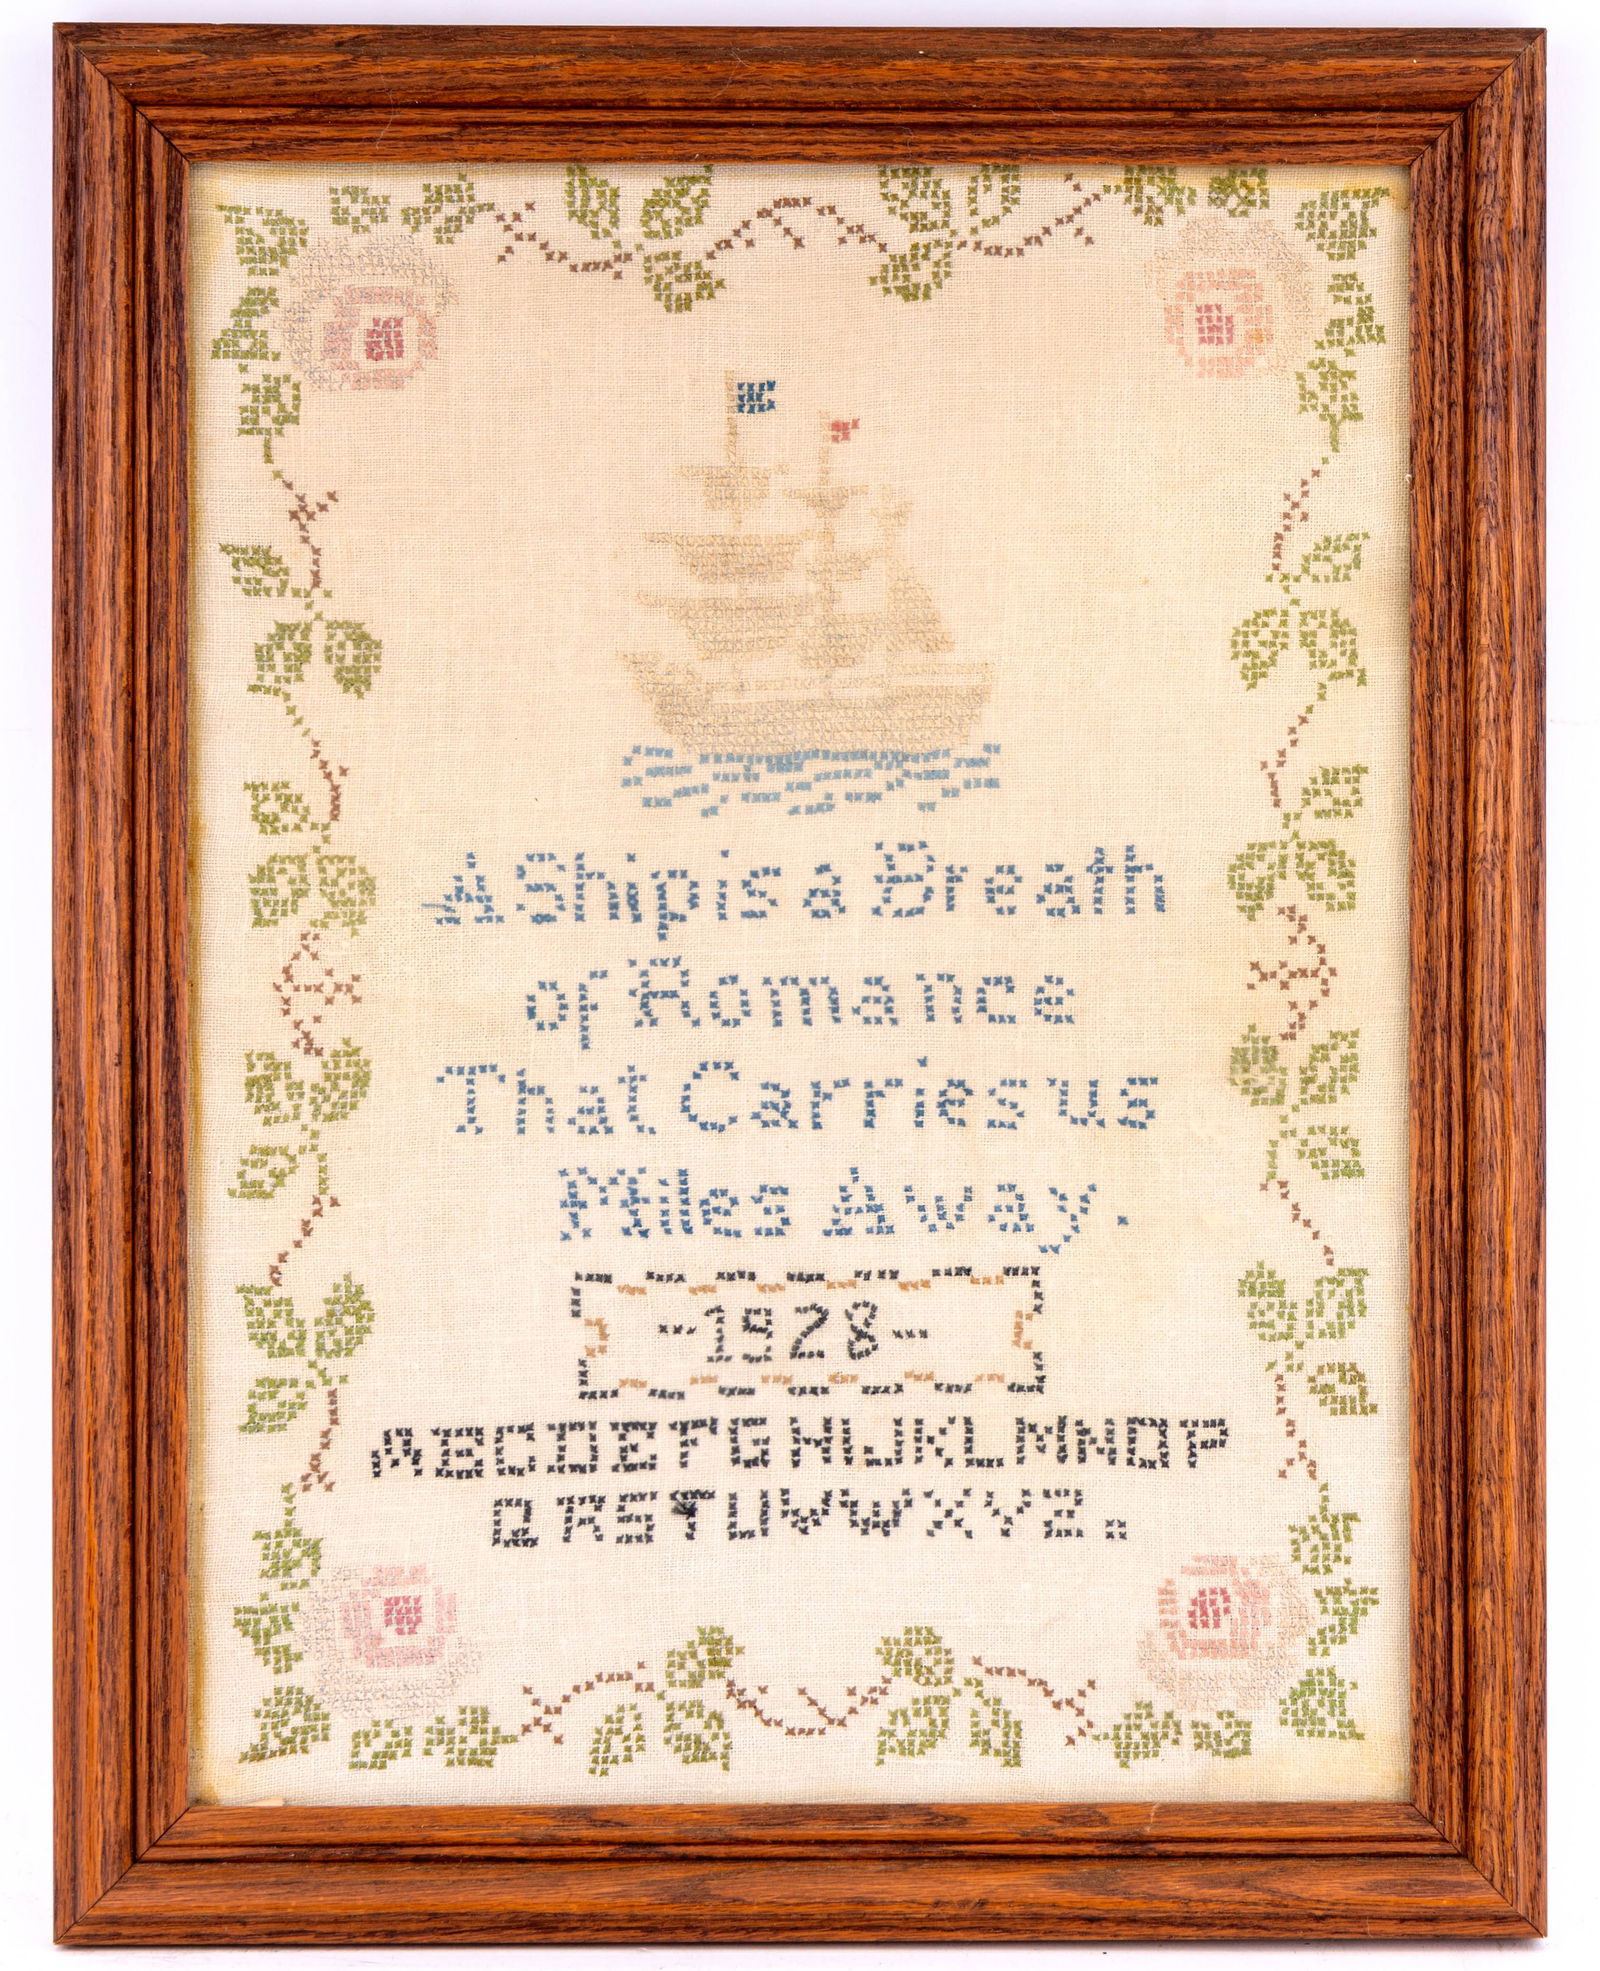 A Ship is a Breath
of Romance
That Carries us
Miles Away.
-1928-
ABCDEFGHIJKLMNOP
QRSTUVWXYZ.